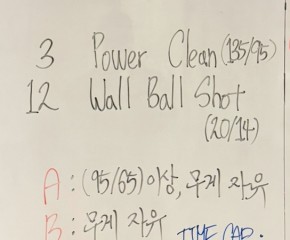 3 Power Clean (135/95)
12 Wall Ball Shot
(20/14)
A : (95/65) 이상, 무게 자유
B : 무게 자유
TIME CAP :